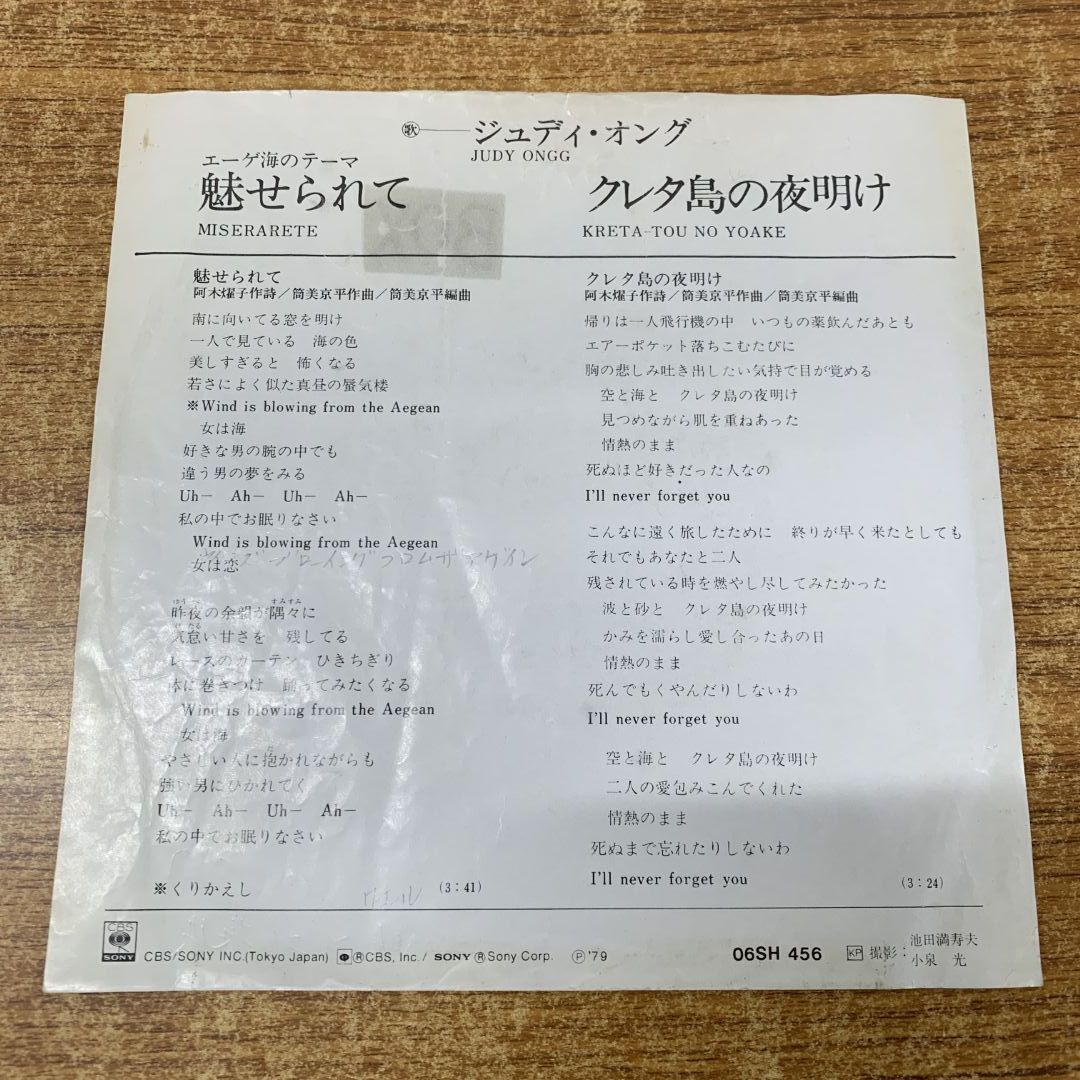 歌 ジュディ・オング
JUDY ONGG
エーゲ海のテーマ
魅せられて
MISERARETE
クレタ島の夜明け
KRETA-TOU NO YOAKE
魅せられて
阿木燿子作詩／筒美京平作曲／筒美京平編曲
南に向いてる窓を明け
一人で見ている 海の色
美しすぎると 怖くなる
若さによく似た真昼の蜃気楼
※Wind is blowing from the Aegean
女は海
好きな男の腕の中でも
違う男の夢をみる
Uh— Ah— Uh— Ah—
私の中でお眠りなさい
Wind is blowing from the Aegean
女は恋
ウィンズ ブローイング フロム ザ アゲイン
昨夜の余韻が隅々に
すみずみ
気怠い甘さを 残してる
レースのカーテン ひきちぎり
体に巻きつけ 踊ってみたくなる
Wind is blowing from the Aegean
女は海
やさしい人に抱かれながらも
強い男にひかれてく
Uh— Ah— Uh— Ah—
私の中でお眠りなさい
※くりかえし
(3:41)
クレタ島の夜明け
阿木燿子作詩／筒美京平作曲／筒美京平編曲
帰りは一人飛行機の中 いつもの薬飲んだあとも
エアーポケット落ちこむたびに
胸の悲しみ吐き出したい気持で目が覚める
空と海と クレタ島の夜明け
見つめながら肌を重ねあった
情熱のまま
死ぬほど好きだった人なの
I'll never forget you
こんなに遠く旅したために 終りが早く来たとしても
それでもあなたと二人
残されている時を燃やし尽してみたかった
波と砂と クレタ島の夜明け
かみを濡らし愛し合ったあの日
情熱のまま
死んでもくやんだりしないわ
I'll never forget you
空と海と クレタ島の夜明け
二人の愛包みこんでくれた
情熱のまま
死ぬまで忘れたりしないわ
I'll never forget you
(3:24)
CBS
SONY
CBS/SONY INC.(Tokyo Japan) ®CBS, Inc./ SONY ®Sony Corp. Ⓟ'79
06SH 456
KP 撮影：池田満寿夫
小泉 光